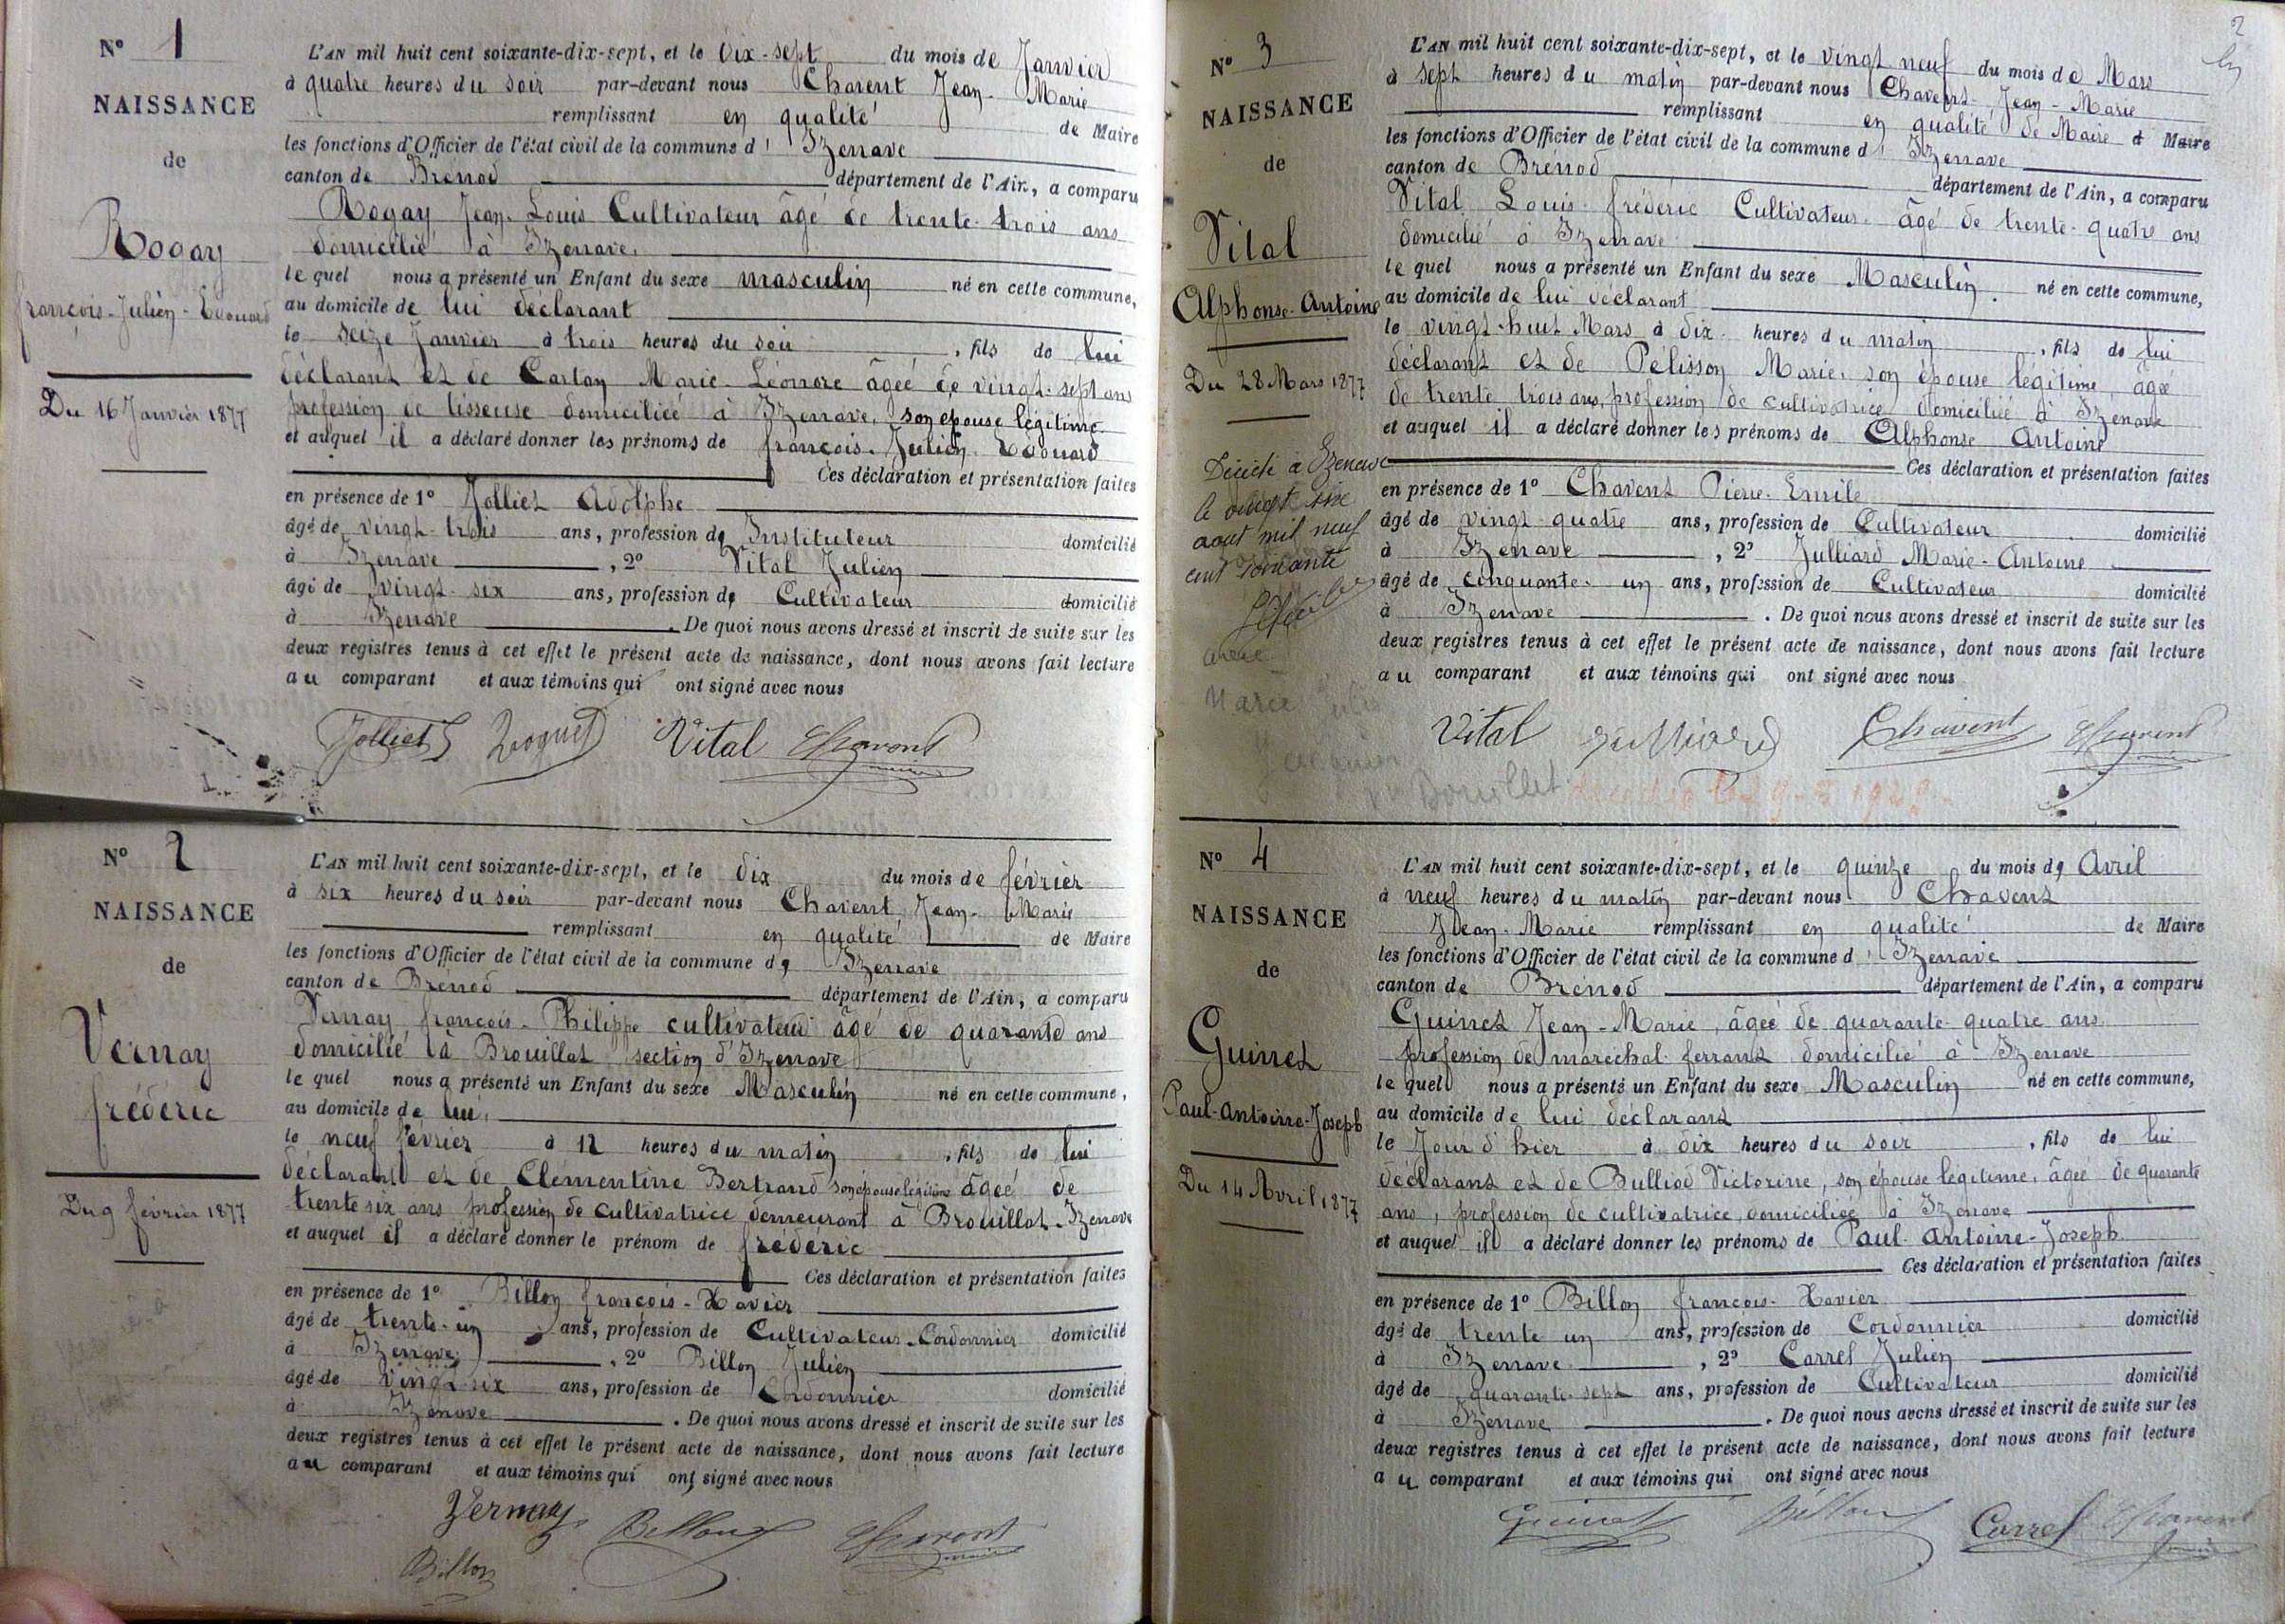 N° 1
NAISSANCE
de
Rogay
françois-Julien-Edouard
Du 16 Janvier 1877
L'AN mil huit cent soixante-dix-sept, et le Dix-sept du mois de Janvier
à quatre heures du soir par-devant nous Chavent Jean-Marie
remplissant en qualité de Maire
les fonctions d'Officier de l'état civil de la commune d' Izenave
canton de Brénod département de l'Ain, a comparu
Rogay Jean-Louis Cultivateur âgé de trente-trois ans
domicilié à Izenave.
le quel nous a présenté un Enfant du sexe masculin né en cette commune,
au domicile de lui déclarant
le seize Janvier à trois heures du soir, fils de lui
déclarant et de Carlay Marie-Léonore âgée de vingt-sept ans
profession de tisseuse domiciliée à Izenave, son épouse légitime
et auquel il a déclaré donner les prénoms de françois-Julien-Edouard
Ces déclaration et présentation faites
en présence de 1° Jolliet Adolphe
âgé de vingt-trois ans, profession de Instituteur domicilié
à Izenave, 2° Vital Julien
âgé de vingt-six ans, profession de Cultivateur domicilié
à Izenave. De quoi nous avons dressé et inscrit de suite sur les
deux registres tenus à cet effet le présent acte de naissance, dont nous avons fait lecture
au comparant et aux témoins qui ont signé avec nous
Jolliet Vital Chavent
N° 2
NAISSANCE
de
Vernay
frédéric
Du 9 février 1877
L'AN mil huit cent soixante-dix-sept, et le dix du mois de février
à six heures du soir par-devant nous Chavent, Jean-Marie
remplissant en qualité de Maire
les fonctions d'Officier de l'état civil de la commune d' Izenave
canton de Brénod département de l'Ain, a comparu
Vernay, françois-Philippe cultivateur âgé de quarante ans
domicilié à Brouillat section d'Izenave
le quel nous a présenté un Enfant du sexe Masculin né en cette commune,
au domicile de lui,
le neuf février à 11 heures du matin, fils de lui
déclarant et de Clémentine Bertrand son épouse légitime âgée de
trente six ans profession de cultivatrice demeurant à Brouillat-Izenave
et auquel il a déclaré donner le prénom de frédéric
Ces déclaration et présentation faites
en présence de 1° Billon françois-Xavier
âgé de trente-un ans, profession de Cultivateur-Cordonnier domicilié
à Izenave, 2° Billon Julien
âgé de vingt-six ans, profession de Cordonnier domicilié
à Izenave. De quoi nous avons dressé et inscrit de suite sur les
deux registres tenus à cet effet le présent acte de naissance, dont nous avons fait lecture
au comparant et aux témoins qui ont signé avec nous
Vernay Billon Chavent
Billon
2
N° 3
NAISSANCE
de
Vital
Alphonse-Antoine
Du 28 Mars 1877
Décédé à Izenave
le vingt six
aout mil neuf
cent soixante
Marie
L'AN mil huit cent soixante-dix-sept, et le vingt neuf du mois de Mars
à sept heures du matin par-devant nous Chavent-Jean-Marie
remplissant en qualité de Maire d Maire
les fonctions d'Officier de l'état civil de la commune d' Izenave
canton de Brénod département de l'Ain, a comparu
Vital Louis-frédéric Cultivateur âgé de trente-quatre ans
domicilié à Izenave
le quel nous a présenté un Enfant du sexe Masculin. né en cette commune,
au domicile de lui déclarant
le vingt-huit Mars à dix heures du matin, fils de lui
déclarant et de Pélisson Marie, son épouse légitime âgée
de trente trois ans, profession de cultivatrice domiciliée à Izenave
et auquel il a déclaré donner les prénoms de Alphonse Antoine
Ces déclaration et présentation faites
en présence de 1° Chavent Pierre-Emile
âgé de vingt-quatre ans, profession de Cultivateur domicilié
à Izenave, 2° Julliard Marie-Antoine
âgé de cinquante-un ans, profession de Cultivateur domicilié
à Izenave. De quoi nous avons dressé et inscrit de suite sur les
deux registres tenus à cet effet le présent acte de naissance, dont nous avons fait lecture
au comparant et aux témoins qui ont signé avec nous
Vital Julliard Chavent Chavent
N° 4
NAISSANCE
de
Guinet
Paul-Antoine-Joseph
Du 14 Avril 1877
L'AN mil huit cent soixante-dix-sept, et le quinze du mois d' Avril
à neuf heures du matin par-devant nous Chavent
Jean-Marie remplissant en qualité de Maire
les fonctions d'Officier de l'état civil de la commune d' Izenave
canton de Brénod département de l'Ain, a comparu
Guinet Jean-Marie, âgée de quarante-quatre ans
profession de maréchal-ferrant domicilié à Izenave
le quel nous a présenté un Enfant du sexe Masculin né en cette commune,
au domicile de lui déclarant
le Jour d'hier à dix heures du soir, fils de lui
déclarant et de Bulliod Victorine, son épouse légitime, âgée de quarante
ans, profession de cultivatrice, domiciliée à Izenave
et auquel il a déclaré donner les prénoms de Paul-Antoine-Joseph
Ces déclaration et présentation faites
en présence de 1° Billon françois-Xavier
âgé de trente un ans, profession de Cordonnier domicilié
à Izenave, 2° Carrel Julien
âgé de quarante-sept ans, profession de Cultivateur domicilié
à Izenave. De quoi nous avons dressé et inscrit de suite sur les
deux registres tenus à cet effet le présent acte de naissance, dont nous avons fait lecture
au comparant et aux témoins qui ont signé avec nous
Guinet Billon Carrel Chavent